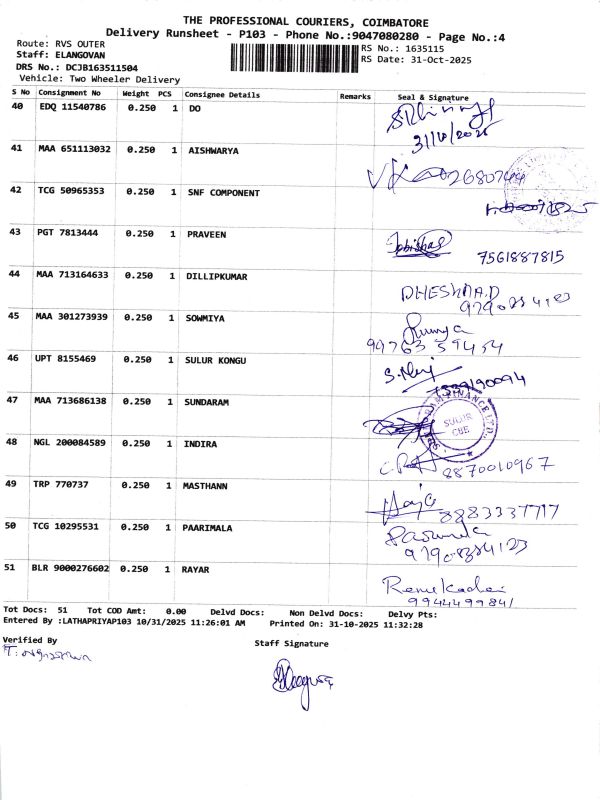 THE PROFESSIONAL COURIERS, COIMBATORE
Delivery Runsheet - P103 - Phone No.:9047080280 - Page No.:4
Route: RVS OUTER
RS No.: 1635115
Staff: ELANGOVAN
RS Date: 31-Oct-2025
DRS No.: DCJB163511504
Vehicle: Two Wheeler Delivery
S No Consignment No Weight PCS Consignee Details Remarks Seal & Signature
40 EDQ 11540786 0.250 1 DO
31/10/2025
41 MAA 651113032 0.250 1 AISHWARYA
42 TCG 50965353 0.250 1 SNF COMPONENT
43 PGT 7813444 0.250 1 PRAVEEN
7561887815
44 MAA 713164633 0.250 1 DILLIPKUMAR
45 MAA 301273939 0.250 1 SOWMIYA
46 UPT 8155469 0.250 1 SULUR KONGU
47 MAA 713686138 0.250 1 SUNDARAM
SULUR
CBE
48 NGL 200084589 0.250 1 INDIRA
8870010967
49 TRP 770737 0.250 1 MASTHANN
8883337717
50 TCG 10295531 0.250 1 PAARIMALA
51 BLR 9000276602 0.250 1 RAYAR
9944499841
Tot Docs: 51 Tot COD Amt: 0.00 Delvd Docs: Non Delvd Docs: Delvy Pts:
Entered By :LATHAPRIYAP103 10/31/2025 11:26:01 AM Printed On: 31-10-2025 11:32:28
Verified By
Staff Signature